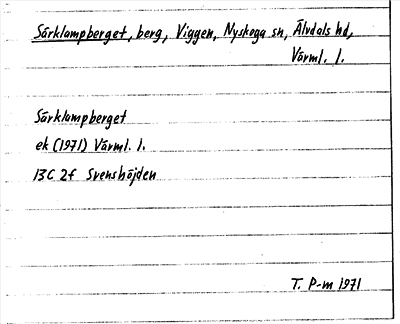 Särklampberget, berg, Viggen, Nyskoga sn, Älvdals hd,
Värml. l.
Särklampberget
ek (1971) Värml. l.
13C 2f Svenshöjden
T. P-m 1971